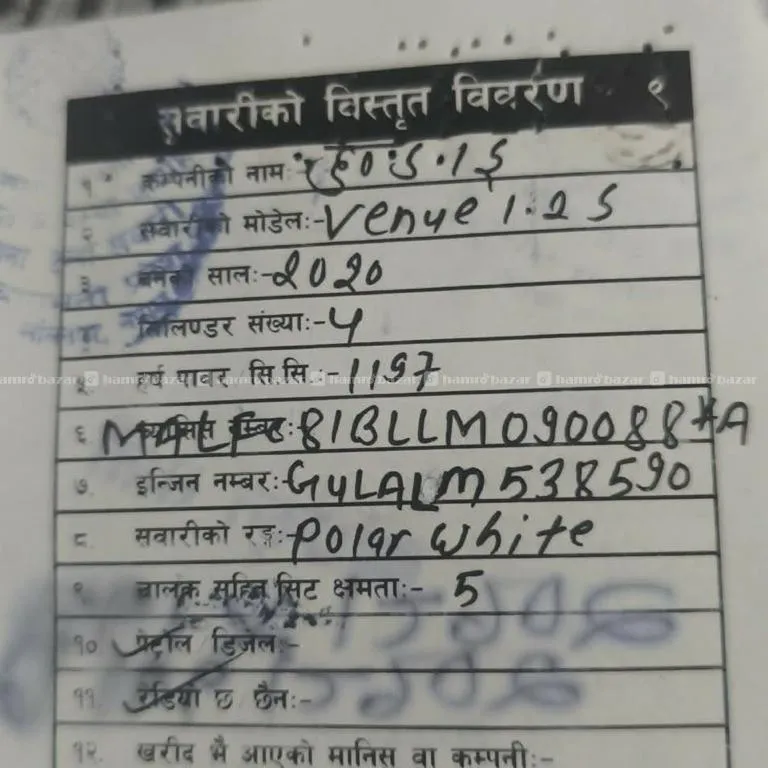 सवारीको विस्तृत विवरण १
१ कम्पनीको नाम:
२ सवारीको मोडेल:- Venue 1.2 S
३ बनेको साल:- 2020
सिलिण्डर संख्या:- 4
५. हर्ष पावर सि.सि.:- 1197
hamrobazar hamrobazar hamrobazar hamrobazar hamrobazar hamrobazar
६ 81BLLM090088*A
७. इन्जिन नम्बर:- G4LALM538590
८ सवारीको रङ्ग:- Polar White
९ चालक सहित सिट क्षमता:- 5
१० पेट्रोल डिजेल:-
११ रेडियो छ छैन:-
१२. खरीद भै आएको मानिस वा कम्पनी:-